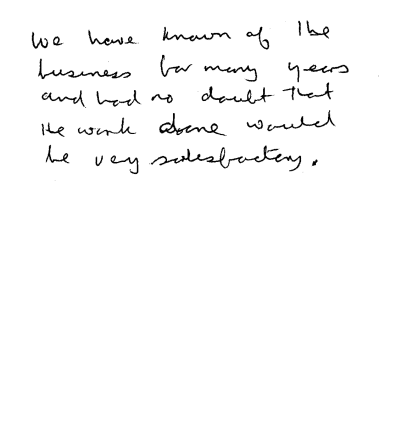 We have known of the
business for many years
and had no doubt that
the work done would
be very satisfactory.